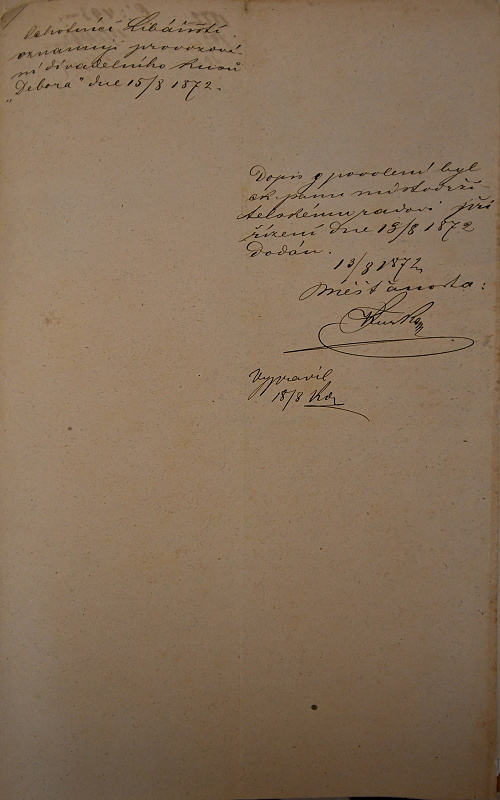 Ochotníci Libáňští
oznamují provozová
ní divadelního kusu
„Debora" dne 15/8 1872.
Dopis o povolení byl
ck. panu místodrži-
telskému radovi při
řízení dne 13/8 1872
dodán.
13/8 1872
Měšťanosta:
Vypravil
18/8